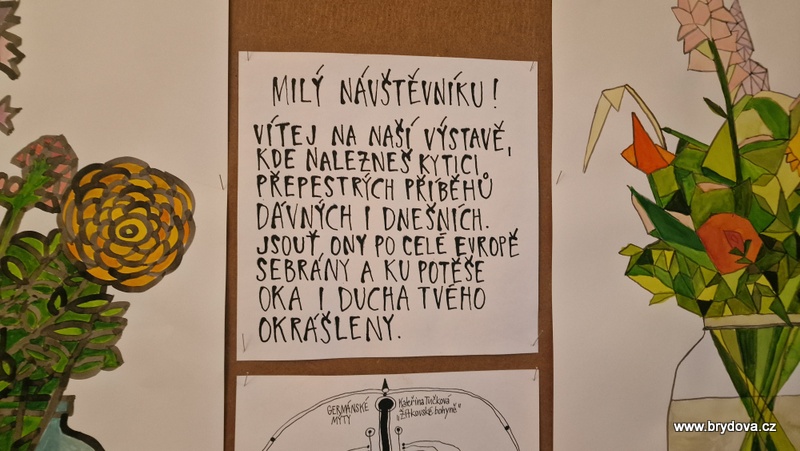 MILÝ NÁVŠTĚVNÍKU!
VÍTEJ NA NAŠÍ VÝSTAVĚ,
KDE NALEZNEŠ KYTICI
PŘEPESTRÝCH PŘÍBĚHŮ
DÁVNÝCH I DNEŠNÍCH.
JSOUŤ ONY PO CELÉ EVROPĚ
SEBRÁNY A KU POTĚŠE
OKA I DUCHA TVÉHO
OKRÁŠLENY.
GERMÁNSKÉ
MÝTY
Kateřina Tučková
„Žítkovské bohyně"
www.brydova.cz